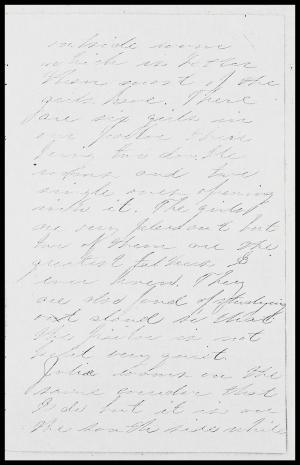 outside room
which is better
than most of the
girls have. There
are six girls in
our parlor there
being two double
rooms and two
single ones opening
into it. The girls
are very pleasant but
two of them are the
greatest talkers I
ever knew. They
are also fond of studying
out aloud so that
the parlor is not
kept very quiet.
Julia rooms on the
same corridor that
I do but it is on
the south side while